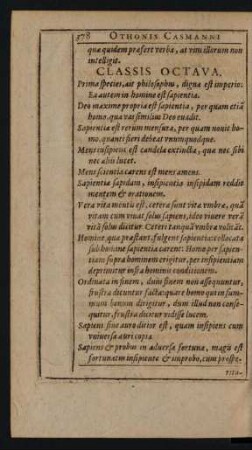 378 OTHONIS CASMANNI
quæ quidem præfert verba, at vim illorum non
intelligit.
CLASSIS OCTAVA.
Prima species, ait philosophus, digna est imperio:
Ea autem in homine est sapientia.
Deo maxime propria est sapientia, per quam etiã
homo, qua vas similius Deo euadit.
Sapientia est rerum mensura, per quam nouit ho-
mo, quanti fieri debeat vnumquodque.
Mens insipiens est candela extincta, quæ nec sibi
nec aliis lucet.
Mens scientia carens est mens manca.
Sapientia sapidam, insipientia insipidam reddit
mentem & orationem.
Vera vita mentis est, cetera sunt vitæ vmbræ, quã
vitam cum viuat solus sapiens, ideo viuere verè
vitã solus dicitur. Ceteri tanquã vmbræ volitãt.
Homines, qui præstant, fulgent sapientiæ
sub homine sapientia carent: Homo per sapien-
tiam supra hominem erigitur, per insipientiam
deprimitur infra hominis conditionem.
Ordinata in finem, dum finem non assequuntur,
frustra dicuntur facta: quare homo qui in sum-
mum bonum dirigitur, dum illud non conse-
quitur, frustra dicitur vidisse lucem.
Sapiens sine auro ditior est, quam insipiens cum
vniuersa auri copia.
Sapiens & probus in aduersa fortuna, magis est
fortunatus insipiente & improbo, cum prospe-